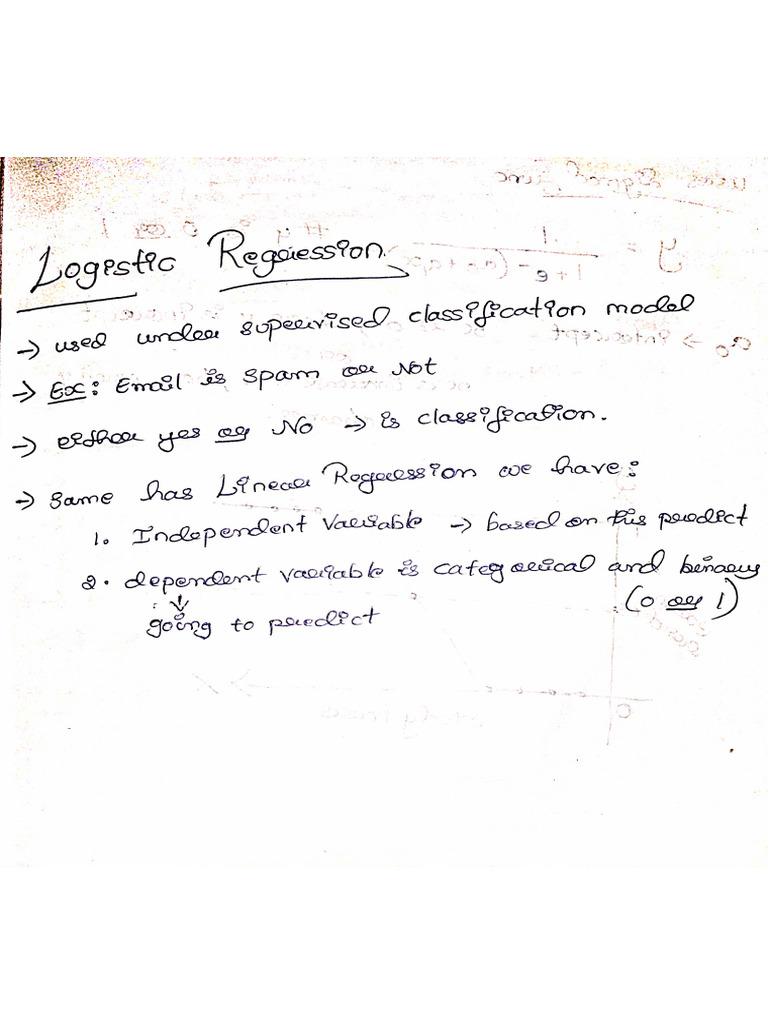 Logistic Regression
→ used under supervised classification model
→ Ex: Email is spam or Not
→ either yes or No → is classification.
→ same has Linear Regression we have:
1. Independent Variable → based on this predict
2. dependent variable is categorical and binary
(0 or 1)
going to predict